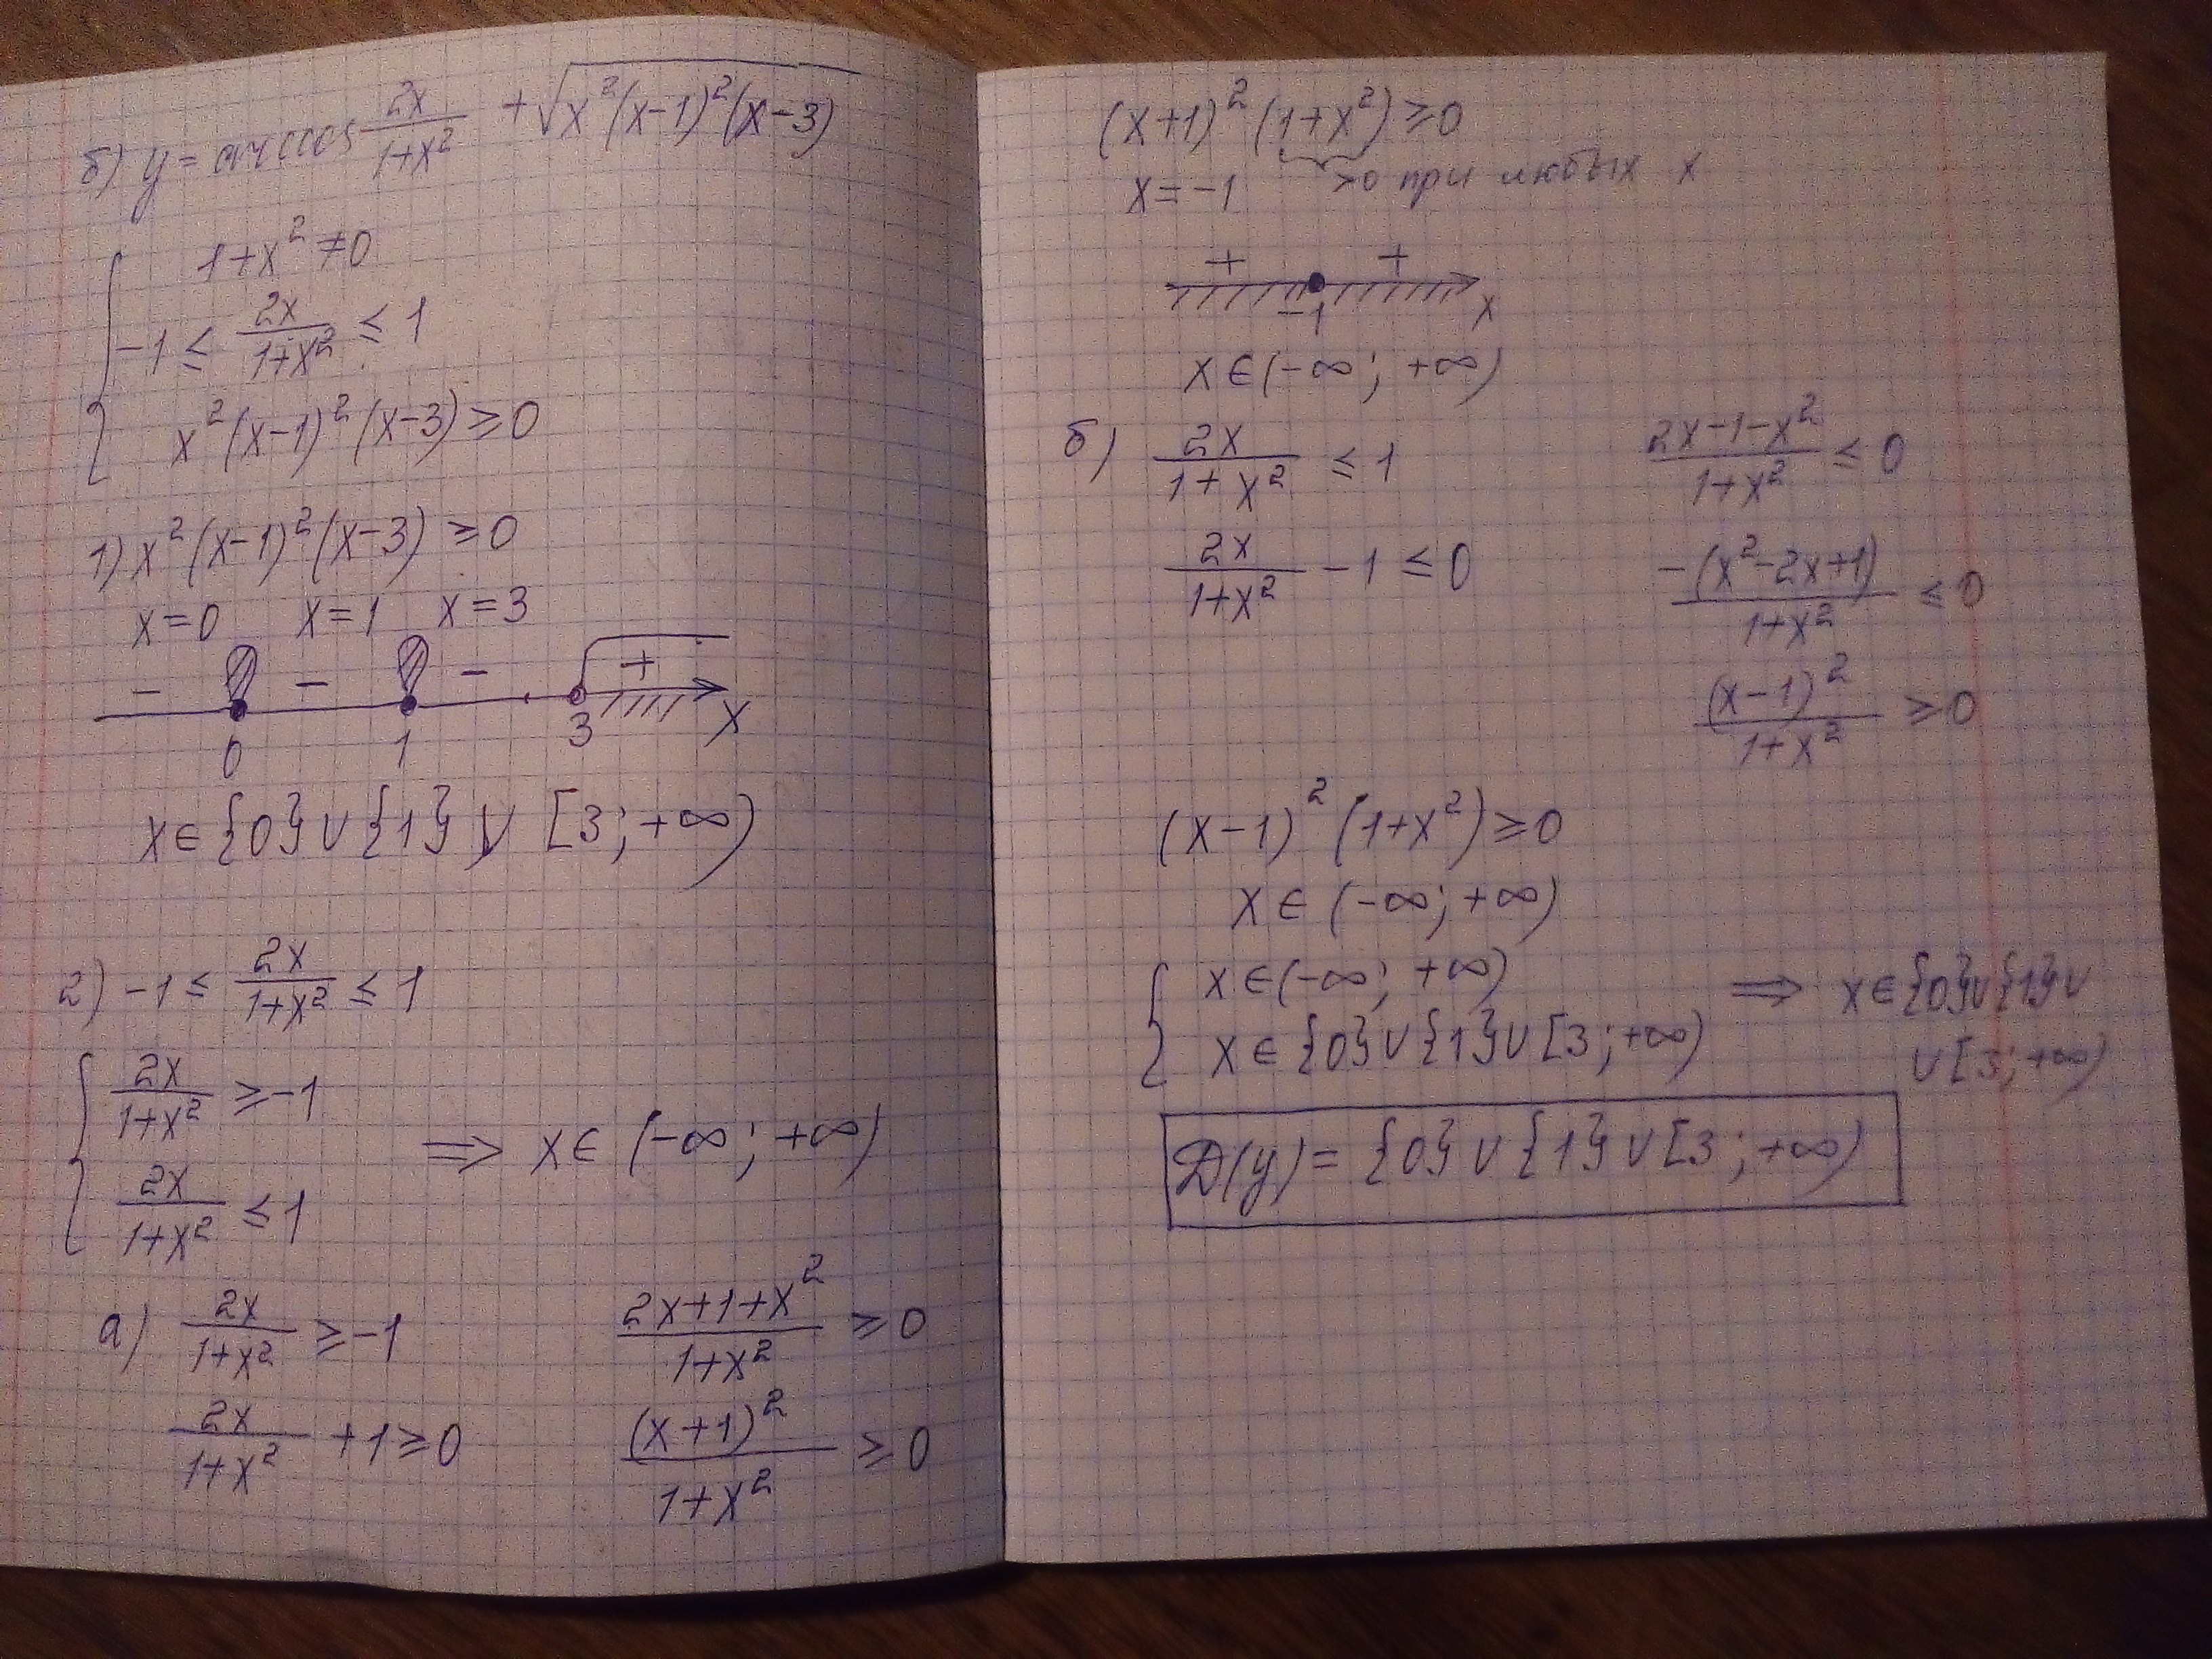 б) y = arccos 2x/(1+x²) + √(x²(x-1)²(x-3))
{ 1+x² ≠ 0
-1 ≤ 2x/(1+x²) ≤ 1
x²(x-1)²(x-3) ≥ 0
1) x²(x-1)²(x-3) ≥ 0
x=0 x=1 x=3
- - - +
0 1 3 x
x ∈ {0} ∪ {1} ∪ [3; +∞)
2) -1 ≤ 2x/(1+x²) ≤ 1
{ 2x/(1+x²) ≥ -1
2x/(1+x²) ≤ 1
⇒ x ∈ (-∞; +∞)
а) 2x/(1+x²) ≥ -1
2x/(1+x²) + 1 ≥ 0
(2x+1+x²)/(1+x²) ≥ 0
(x+1)²/(1+x²) ≥ 0
(x+1)²(1+x²) ≥ 0
x = -1 >0 при любых x
+ +
-1 x
x ∈ (-∞; +∞)
б) 2x/(1+x²) ≤ 1
2x/(1+x²) - 1 ≤ 0
(2x-1-x²)/(1+x²) ≤ 0
-(x²-2x+1)/(1+x²) ≤ 0
(x-1)²/(1+x²) ≥ 0
(x-1)²(1+x²) ≥ 0
x ∈ (-∞; +∞)
{ x ∈ (-∞; +∞)
x ∈ {0} ∪ {1} ∪ [3; +∞)
⇒ x ∈ {0} ∪ {1} ∪
∪ [3; +∞)
D(y) = {0} ∪ {1} ∪ [3; +∞)